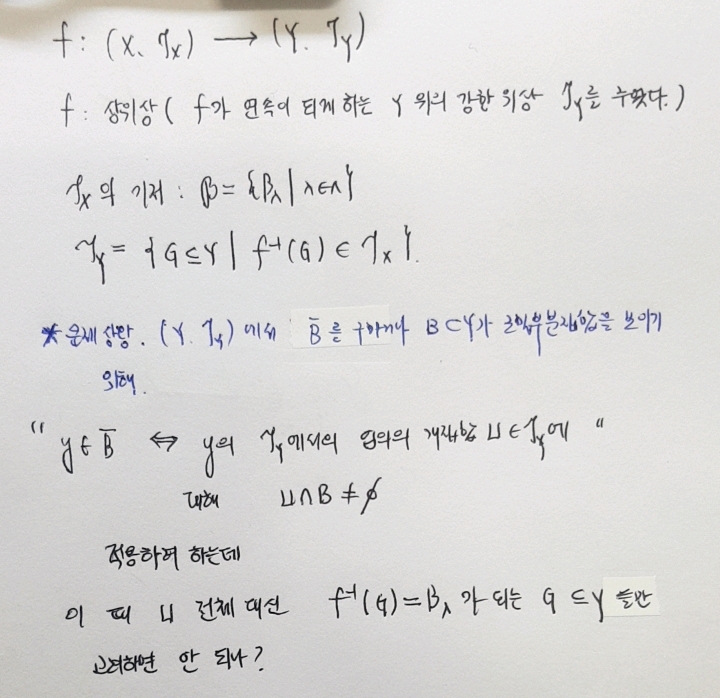 f : (X, 𝒯x) → (Y, 𝒯Y)
f : 상위상 ( f가 연속이 되게 하는 Y 위의 강한 위상 𝒯Y를 주었다. )
𝒯x의 기저 : β = {Bλ | λ∈Λ}
𝒯Y = { G ⊆ Y | f⁻¹(G) ∈ 𝒯x }.
* 문제 상황. (Y, 𝒯Y) 에서 B̄를 구하거나 B⊂Y가 조밀부분집합임을 보이기
위해.
" y∈B̄ ⇔ y의 𝒯Y에서의 임의의 개집합 U∈𝒯Y에 "
대해 U∩B ≠ ∅
적용하려 하는데
이 때 U 전체 대신 f⁻¹(G) = Bλ 가 되는 G ⊆ Y 들만
고려하면 안 되나?